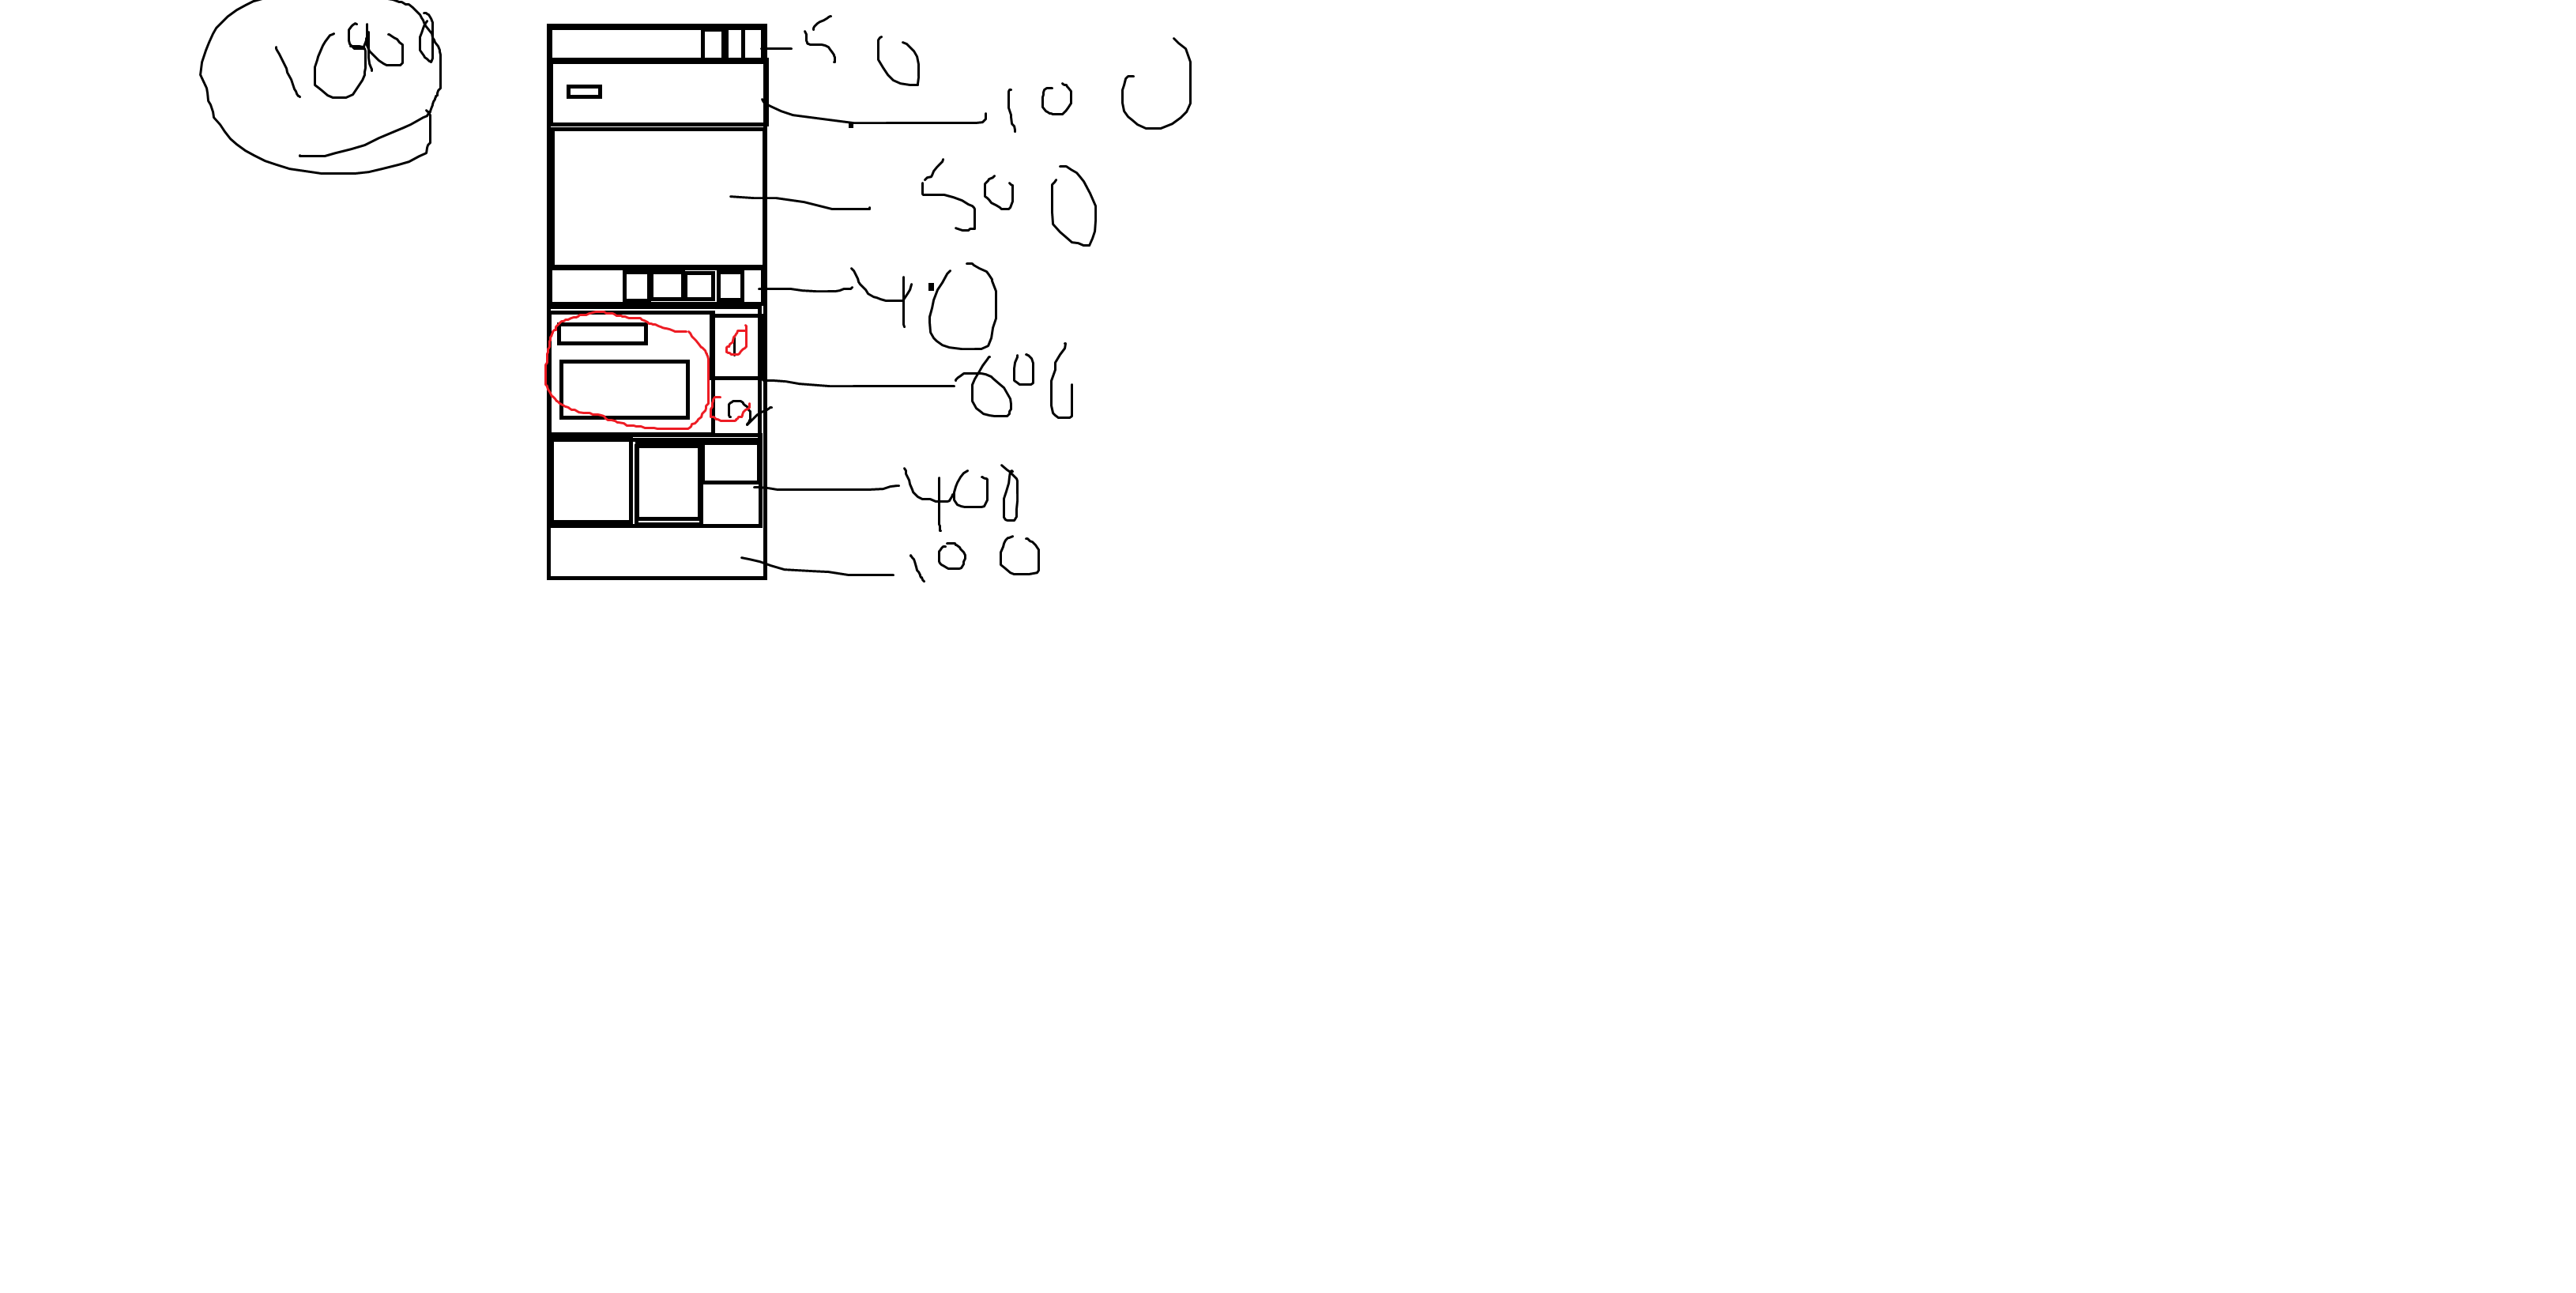 50
100
500
40
600
400
100